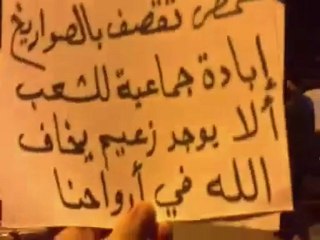 حمص تقصف بالصواريخ
إبادة جماعية للشعب
ألا يوجد زعيم يخاف
الله في أرواحنا